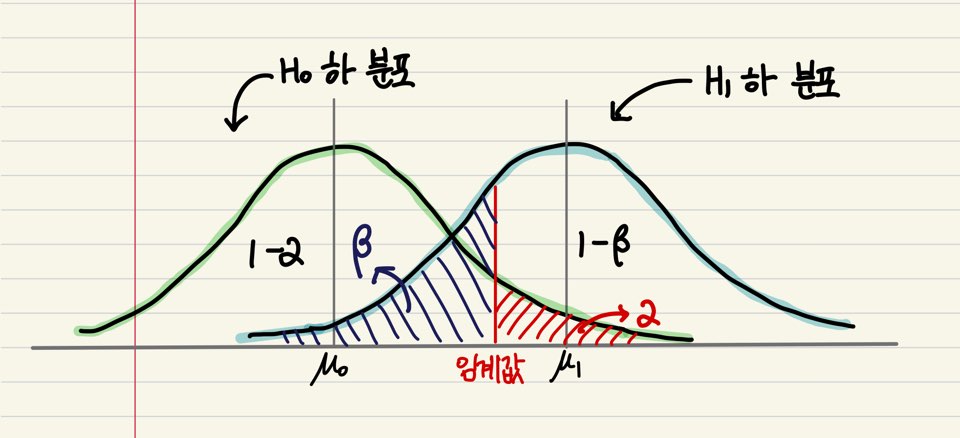 H₀ 하 분포
H₁ 하 분포
1-α
β
1-β
α
μ₀
임계값
μ₁